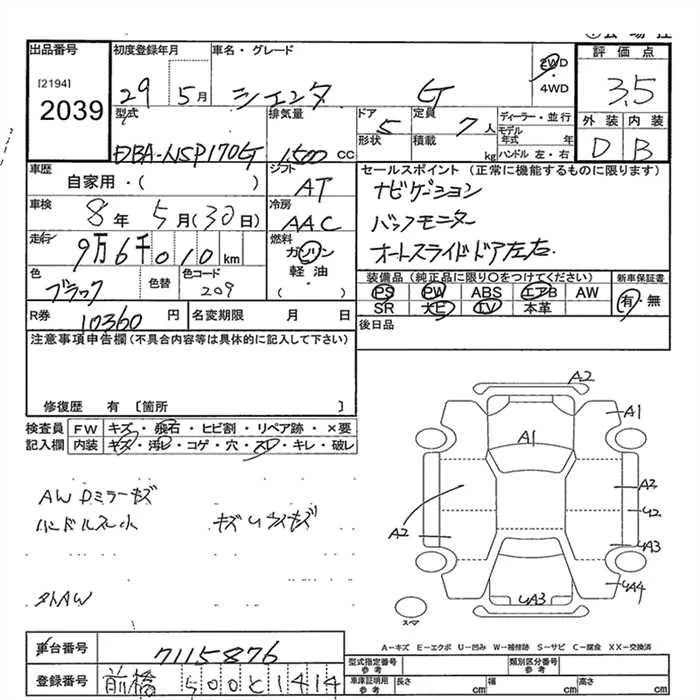 出品番号 初度登録年月 車名・グレード 評価点
[2194]
2039
29 5月 シエンタ G 2WD・4WD 3.5
型式 排気量 ドア 5 定員 7人 ディーラー・並行
形状 積載 kg モデル年式 年 ハンドル 左・右
外装 内装
DBA-NSP170G 1,500 CC D B
車歴 シフト セールスポイント(正常に機能するものに限ります)
自家用・( ) AT ナビゲーション
車検 8年5月(30日) 冷房 AAC バックモニター
走行 9万6千010km 燃料 ガソリン 軽油 ( ) オートスライドドア左右
色 ブラック 色替 色コード 209
装備品(純品に限り〇をつけてください) 新車保証書
PS PW ABS エアB AW 有・無
SR ナビ TV 本革
R券 10360円 名変期限 月 日 後日品
注意事項申告欄(不具合内容等は具体的に記入して下さい)
修復歴 有 [箇所 ]
検査員記入欄 FW キズ・飛石・ヒビ割・リペア跡・×要
内装 キズ・汚レ・コゲ・穴・スレ・キレ・破レ
AW Dミラーキズ
ハンドルスレ小
A2
A1
A1
A2
U2
A2
UA3
UA3
UA4
スペア
A-キズ E-エクボ U-凹み W-補修跡 S-サビ C-腐食 XX-交換済
車台番号 7115876
登録番号 前橋 500 と 1414
型式指定番号 参考 類別区分番号 参考
車庫証明用 参考 長さ cm 幅 cm 高さ cm